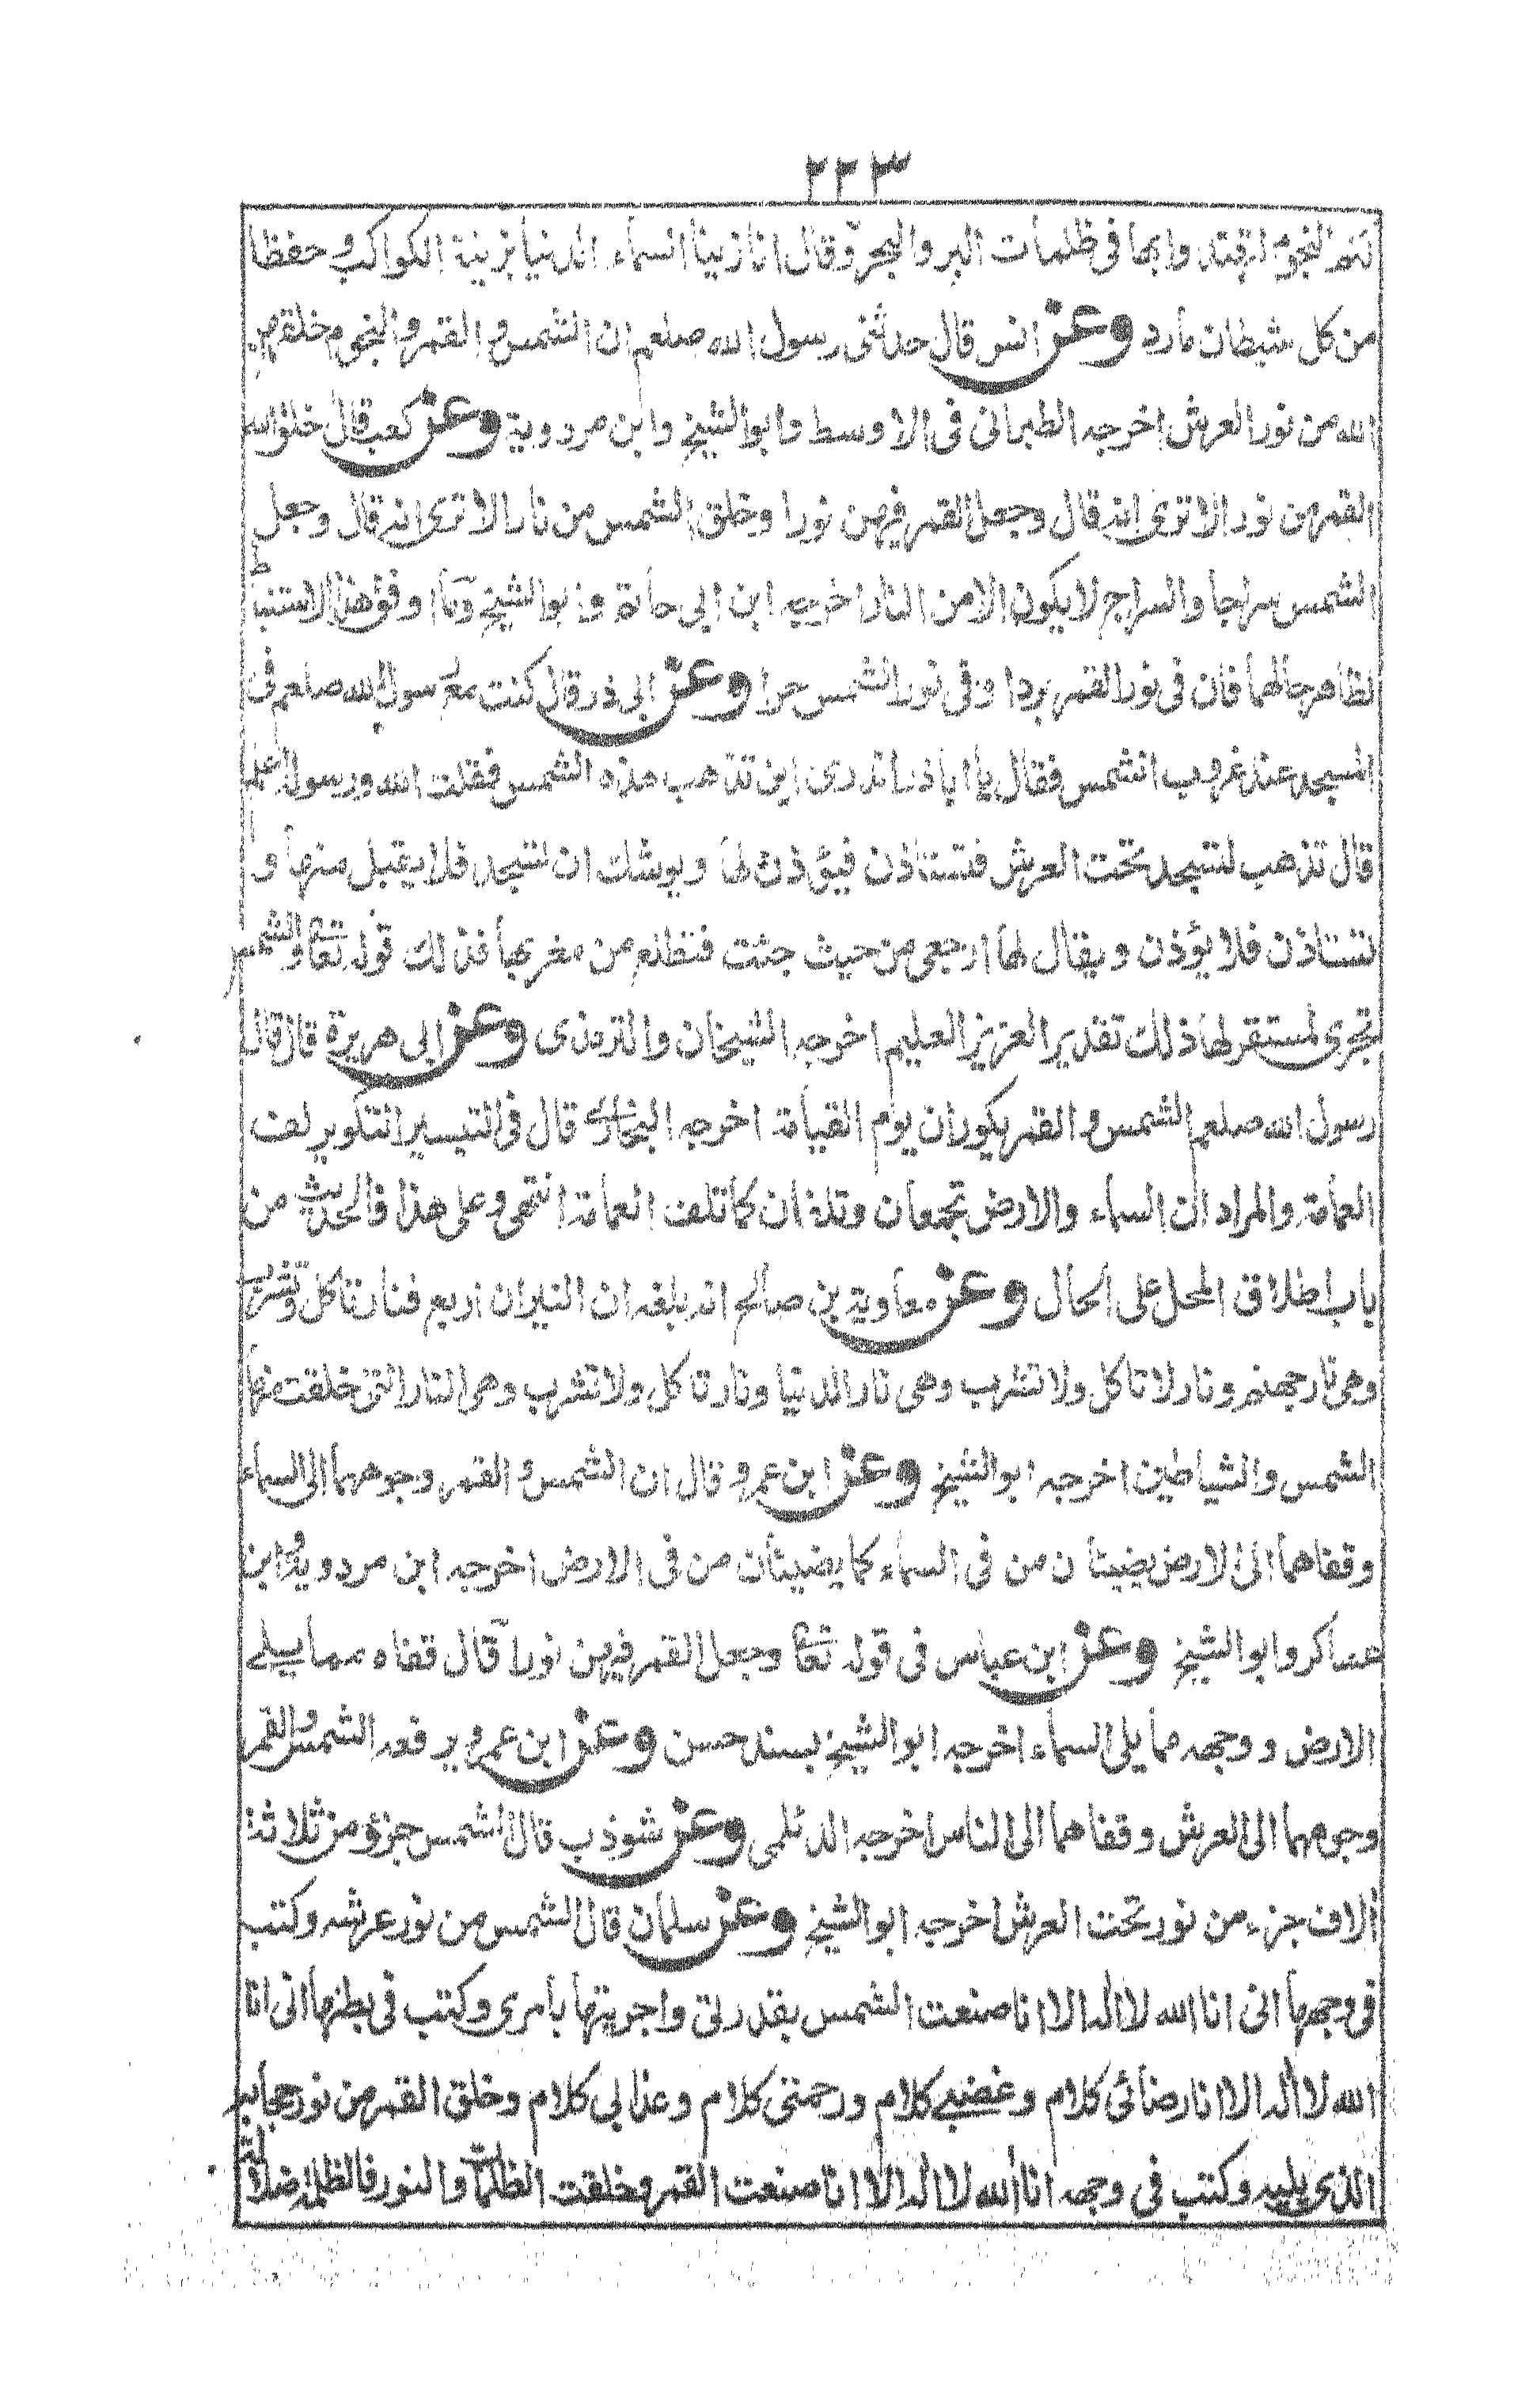 ٢٢٣
لكم النجوم لتهتدوا بها فى ظلمات البر والبحر وقال انا زينا السماء الدنيا بزينة الكواكب وحفظا
من كل شيطان مارد وعن انس قال حدثنى رسول الله صلعم ان الشمس والقمر والنجوم خلقهن
الله من نور العرش اخرجه الطبرانى فى الاوسط وابو الشيخ وابن مردوية وعن كعب قال خلق الله
القمر من نور الا ترى انه قال وجعل القمر فيهن نورا وخلق الشمس من نار الا ترى انه قال وجعل
الشمس سراجا والسراج لا يكون الا من النار اخرجه ابن ابى حاتم وابو الشيخ وقالا وفق هذا الاستنباط
لظاهر حالهما فان فى نور القمر بردا وفى نور الشمس حرا وعن ابى ذر قال كنت مع رسول الله صلعم فى
المسجد عند غروب الشمس فقال يا ابا ذر اتدرى اين تذهب هذه الشمس فقلت الله ورسوله اعلم
قال تذهب لتسجد تحت العرش فتستاذن فيؤذن لها ويوشك ان تسجد فلا يقبل منها و
تستاذن فلا يؤذن ويقال لها ارجعى من حيث جئت فتطلع من مغربها فذلك قوله تعا والشمس
تجرى لمستقر لها ذلك تقدير العزيز العليم اخرجه الشيخان والترمذى وعن ابى هريرة قال قال
رسول الله صلعم الشمس والقمر يكوران يوم القيامة اخرجه البخارى قال فى التيسير التكوير لف
العمامة والمراد ان السماء والارض تجمعان وتلفان كما تلف العمامة انتهى وعلى هذا فالحديث من
باب اطلاق المحل على الحال وعن معاوية بن صالح انه بلغه ان النيران اربع فنار تاكل وتشرب
وهى نار جهنم ونار لا تاكل ولا تشرب وهى نار الدنيا ونار تاكل ولا تشرب وهى النار التى خلقت منها
الشمس والشياطين اخرجه ابو الشيخ وعن ابن عمرو قال ان الشمس والقمر وجوههما الى السماء
وقفاهما الى الارض يضيئان من فى السماء كما يضيئان من فى الارض اخرجه ابن مردوية وابن
عساكر وابو الشيخ وعن ابن عباس فى قوله تعا وجعل القمر فيهن نورا قال قفاه مما يلى
الارض ووجهه مما يلى السماء اخرجه ابو الشيخ بسند حسن وعن ابن عمرو يرفعه الشمس والقمر
وجوههما الى العرش وقفاهما الى الناس اخرجه الديلمى وعن شوذب قال الشمس جزؤ من ثلاثة
الاف جزء من نور تحت العرش اخرجه ابو الشيخ وعن سلمان قال الشمس من نور عرشه وكتب
فى وجهها انى انا الله لا اله الا انا صنعت الشمس بقدرتى واجريتها بامرى وكتب فى بطنها انى انا
الله لا اله الا انا رضائى كلام وغضبى كلام ورحمتى كلام وعذابى كلام وخلق القمر من نور حجابه
الذى يليه وكتب فى وجهه انا الله لا اله الا انا صنعت القمر وخلقت الظلمات والنور فالظلمة ضلالة